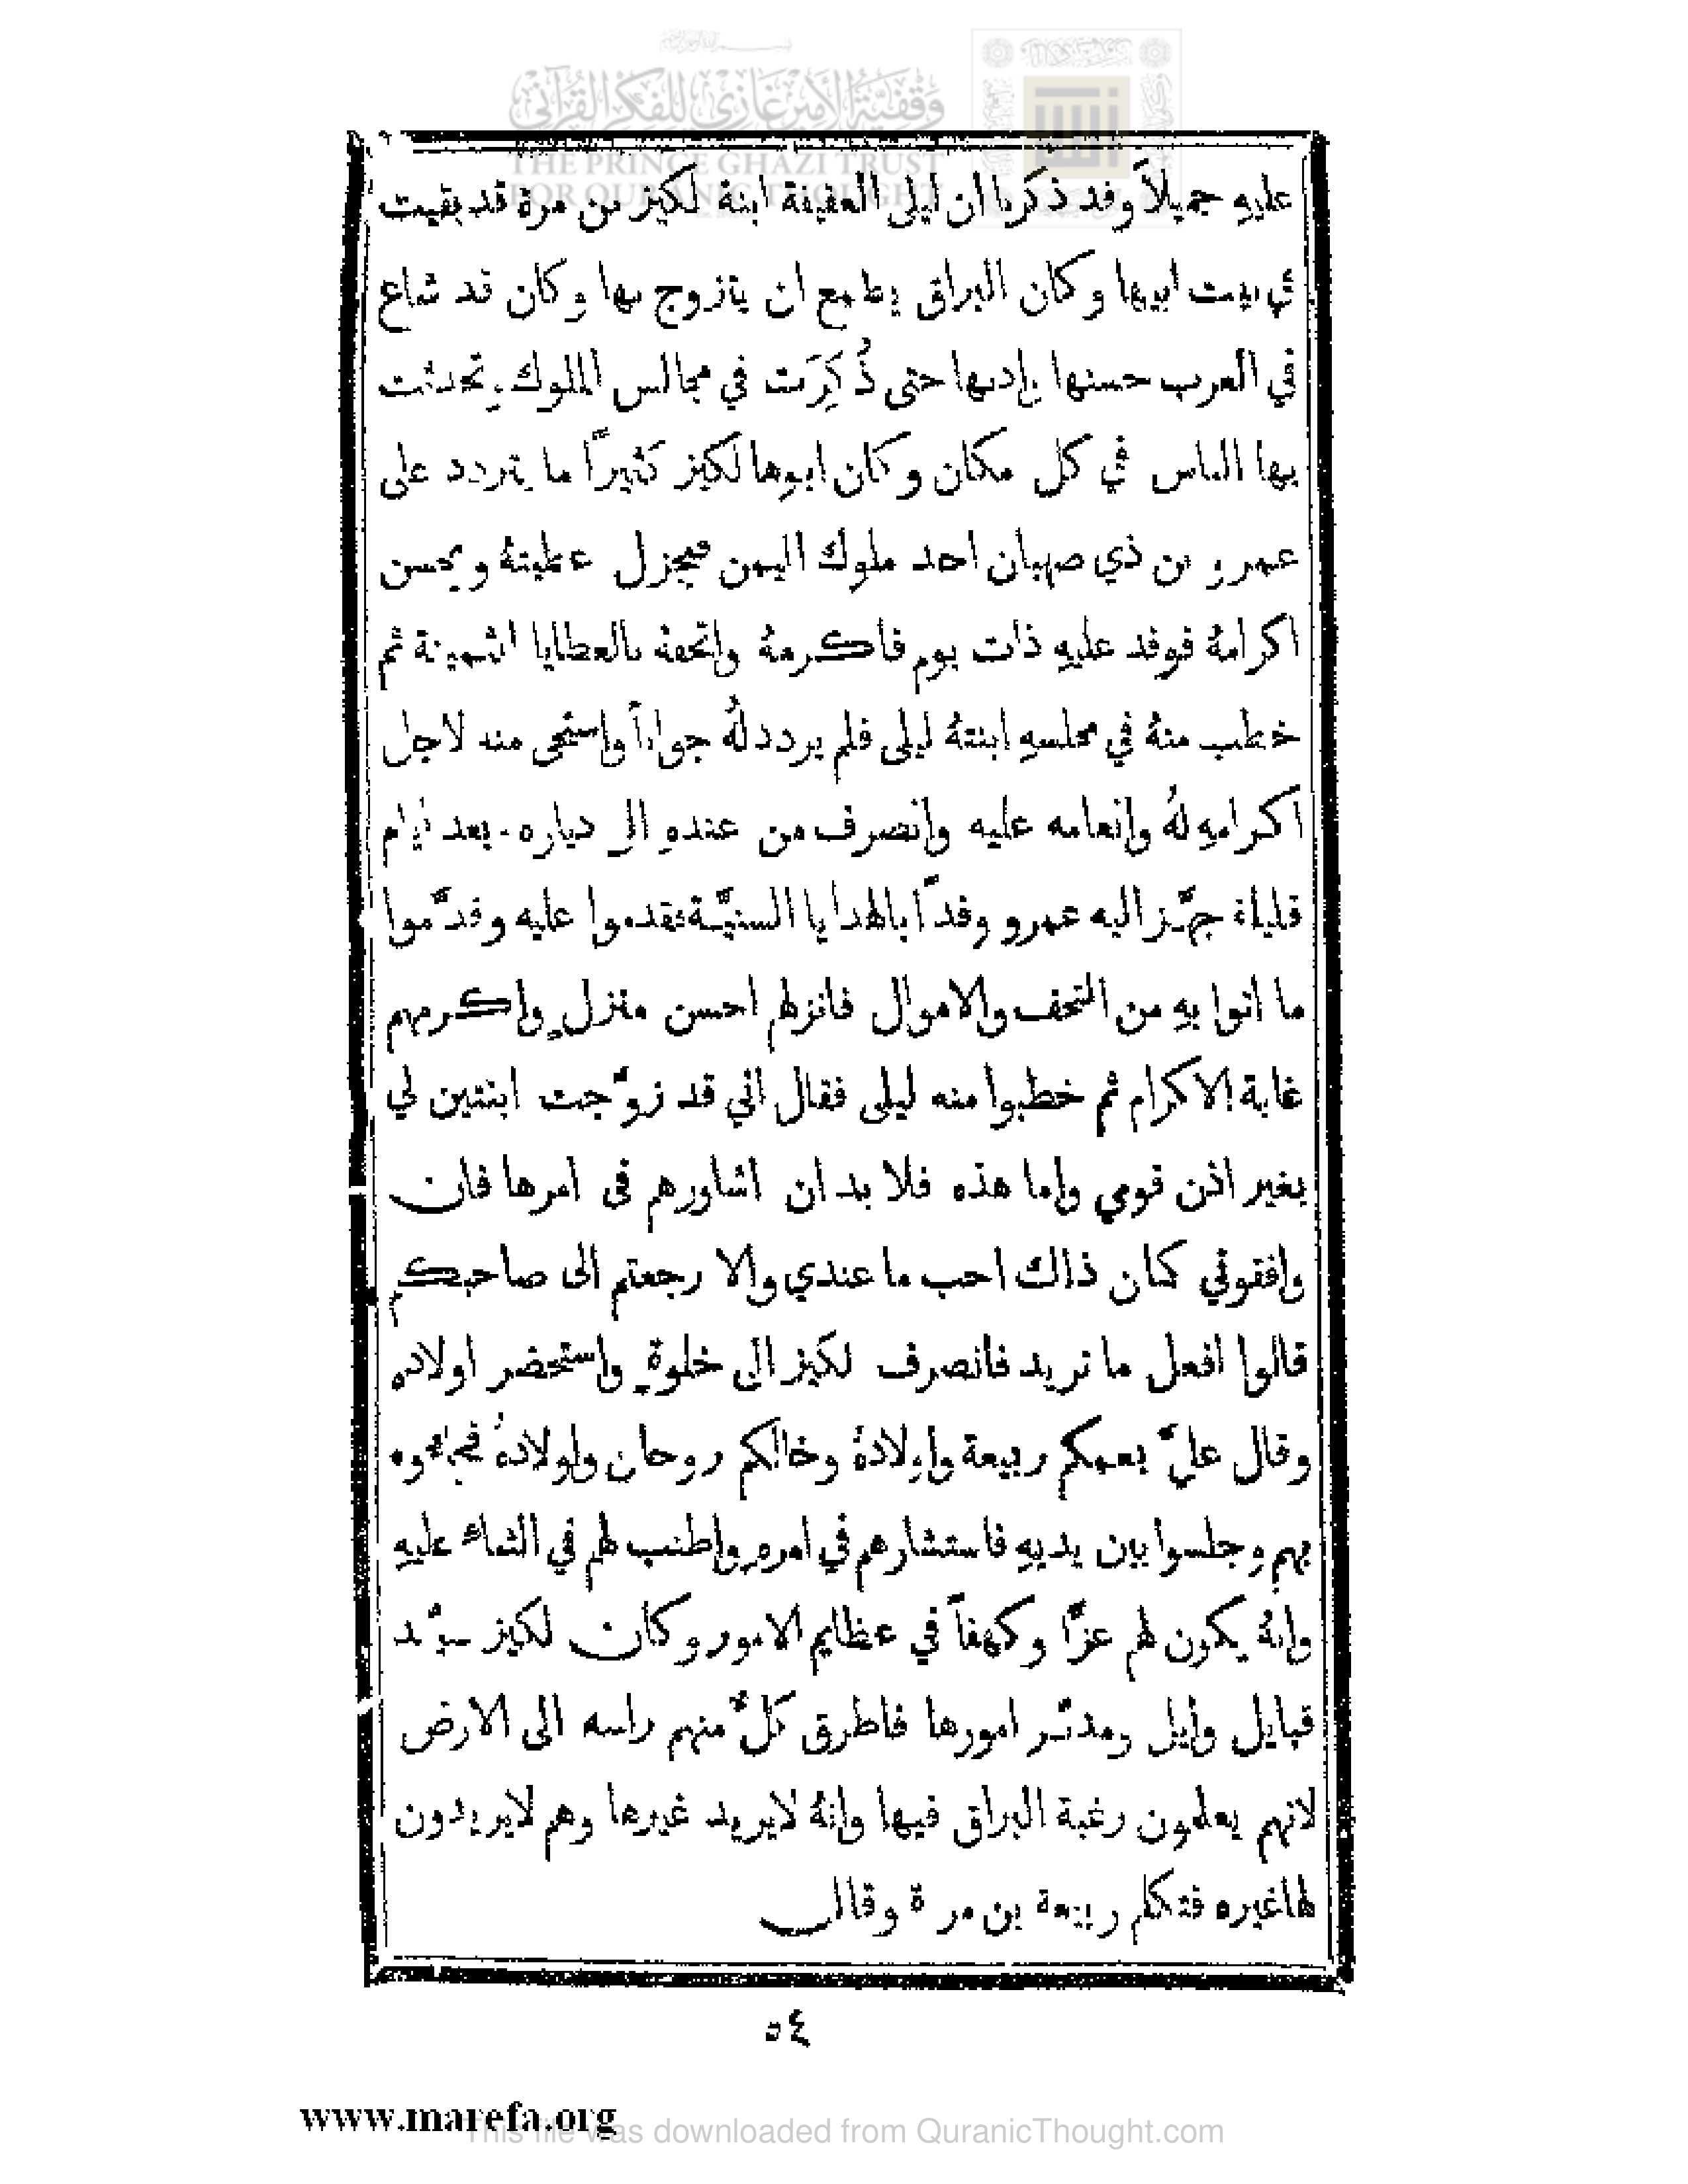 وقفية الأمير غازي للفكر القرآني
THE PRINCE GHAZI TRUST
FOR QURANIC THOUGHT
عليهِ جميلاً وقد ذكرنا ان ليلى العفيفة ابنة لكيز بن مرة قد بقيت
في بيت ابيها وكان البراق يطمع ان يتزوج بها وكان قد شاع
في العرب حسنها وادبها حتى ذُكِرَت في مجالس الملوك وتحدثت
بها الناس في كل مكان وكان ابوها لكيز كثيراً ما يتردد على
عمرو بن ذي صهبان احد ملوك اليمن فيجزل عطيتهُ ويحسن
اكرامهُ فوفد عليهِ ذات يوم فاكرمهُ واتحفهُ بالعطايا الثمينة ثم
خطب منهُ في مجلسهِ ابنتهُ ليلى فلم يردد لهُ جواباً واستحى منه لاجل
اكرامهِ لهُ وانعامه عليه وانصرف من عندهِ الى دياره وبعد ايام
قليلة جهَّز اليه عمرو وفداً بالهدايا السنيَّة فقدموا عليه وقدَّموا
ما اتوا بهِ من التحف والاموال فانزلهم احسن منزلٍ واكرمهم
غاية الاكرام ثم خطبوا منه ليلى فقال اني قد زوَّجت ابنتين لي
بغير اذن قومي واما هذه فلا بد ان اشاورهم فى امرها فان
وافقوني كان ذلك احب ما عندي والا رجعتم الى صاحبكم
قالوا افعل ما تريد فانصرف لكيز الى خلوةٍ واستحضر اولاده
وقال عليَّ بعمكم ربيعة واولادهُ وخالكم روحان واولادهُ فجاءوه
بهم وجلسوا بين يديهِ فاستشارهم في امرهِ واطنب لهم في الثناء عليهِ
وانهُ يكون لهم عزًّا وكهفاً في عظايم الامور وكان لكيز سيّد
قبايل وايل ومدبّر امورها فاطرق كلٌّ منهم راسه الى الارض
لانهم يعلمون رغبة البراق فيها وانهُ لا يريد غيرها وهم لا يريدون
لها غيره فتكلم ربيعة بن مرة وقال
٥٤
www.marefa.org
This file was downloaded from QuranicThought.com